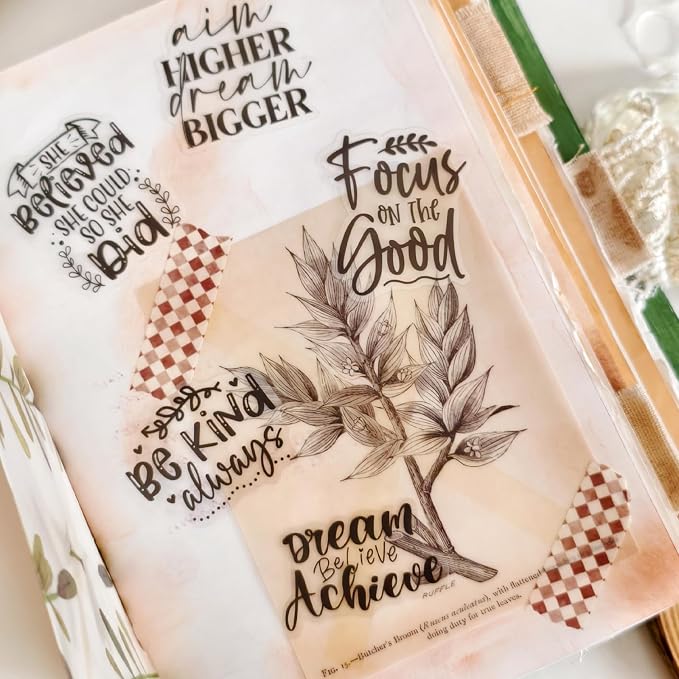 aim
HIGHER
dream
BIGGER
SHE
BELieved
SHE COULD
SO SHE
DiD
Focus
ON THE
Good
BE KiND
always
DREAM
BeLieve
Achieve
RUFFLE
FIG. 15.—Butcher's Broom (Ruscus aculeatus), with flattened
doing duty for true leaves.